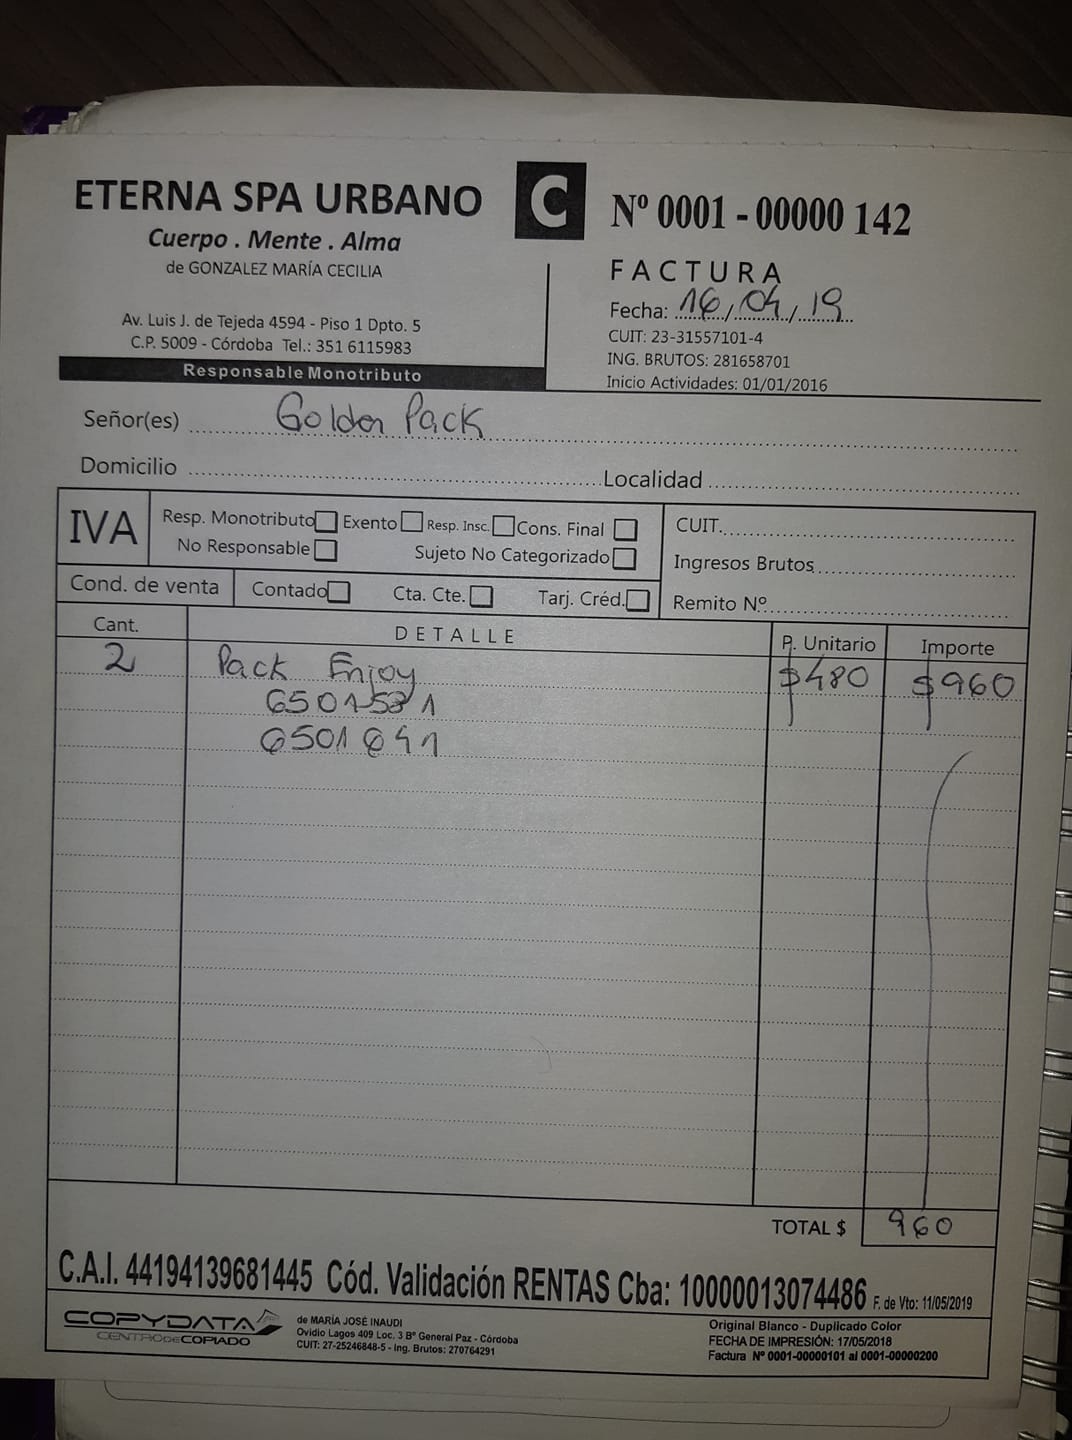 ETERNA SPA URBANO
Cuerpo . Mente . Alma
de GONZALEZ MARÍA CECILIA
Av. Luis J. de Tejeda 4594 - Piso 1 Dpto. 5
C.P. 5009 - Córdoba Tel.: 351 6115983
Responsable Monotributo
C
Nº 0001 - 00000 142
FACTURA
Fecha: 16/04/19
CUIT: 23-31557101-4
ING. BRUTOS: 281658701
Inicio Actividades: 01/01/2016
Señor(es) Golden Pack
Domicilio Localidad
IVA Resp. Monotributo Exento Resp. Insc. Cons. Final
No Responsable Sujeto No Categorizado
CUIT.
Ingresos Brutos
Cond. de venta Contado Cta. Cte. Tarj. Créd. Remito Nº
Cant. DETALLE P. Unitario Importe
2 Pack Enjoy $480 $960
6501531
6501641
TOTAL $ 960
C.A.I. 44194139681445 Cód. Validación RENTAS Cba: 10000013074486 F. de Vto: 11/05/2019
COPYDATA
CENTRO DE COPIADO
de MARÍA JOSÉ INAUDI
Ovidio Lagos 409 Loc. 3 Bº General Paz - Córdoba
CUIT: 27-25246848-5 - Ing. Brutos: 270764291
Original Blanco - Duplicado Color
FECHA DE IMPRESIÓN: 17/05/2018
Factura Nº 0001-00000101 al 0001-00000200